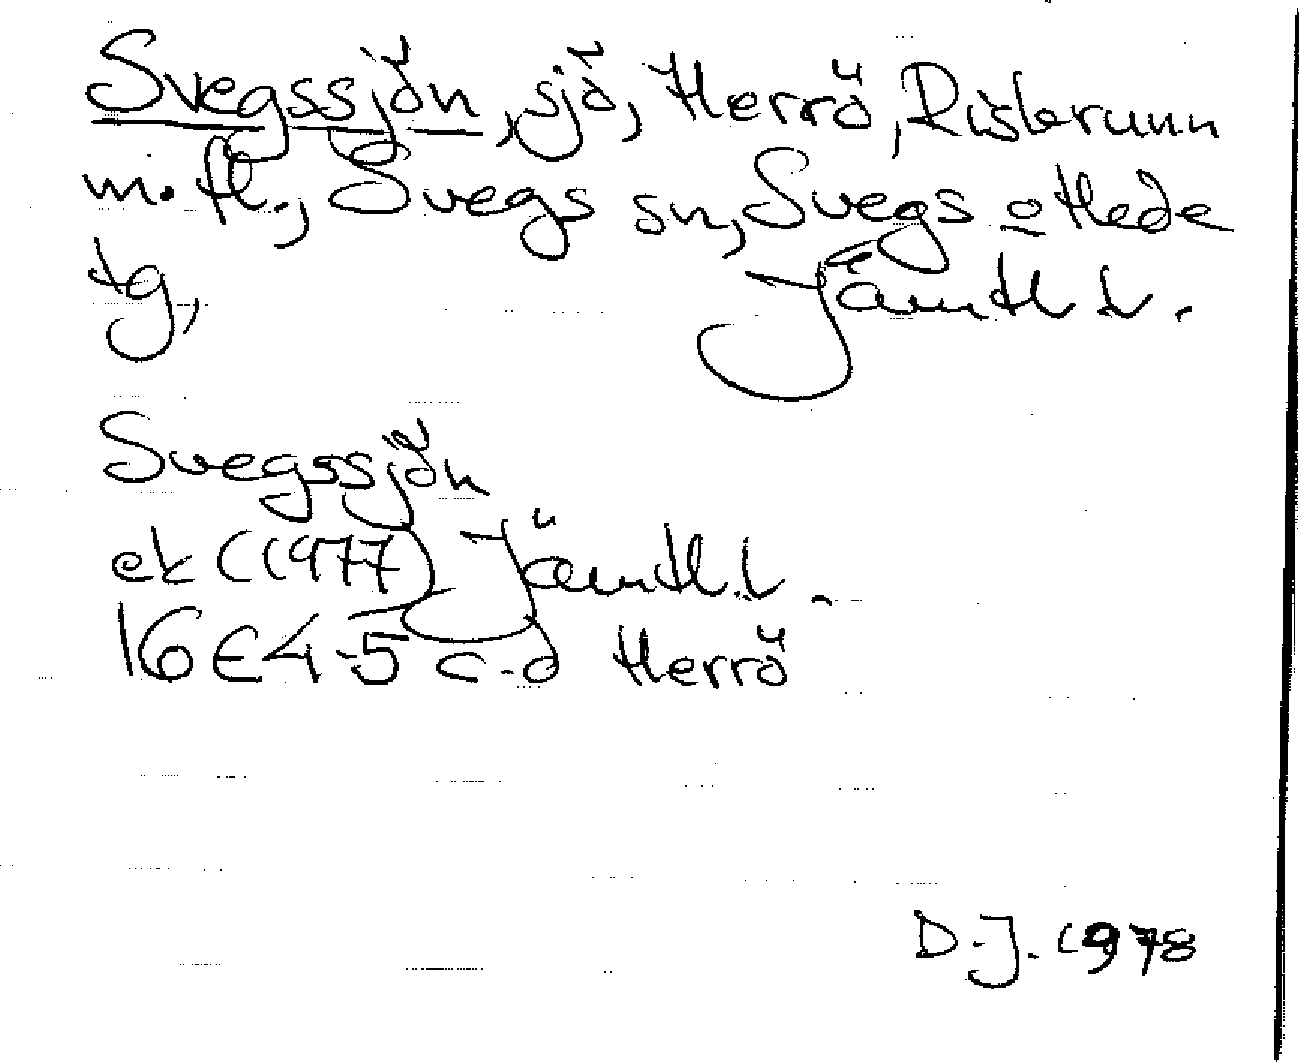 Svegssjön, sjö, Herrö, Risbrunn
m.fl., Svegs sn, Svegs o Hede
tg, Jämtl l.
Svegssjön
ek (1977) Jämtl.l.
16E4-5 c-d Herrö
D.J. 1978